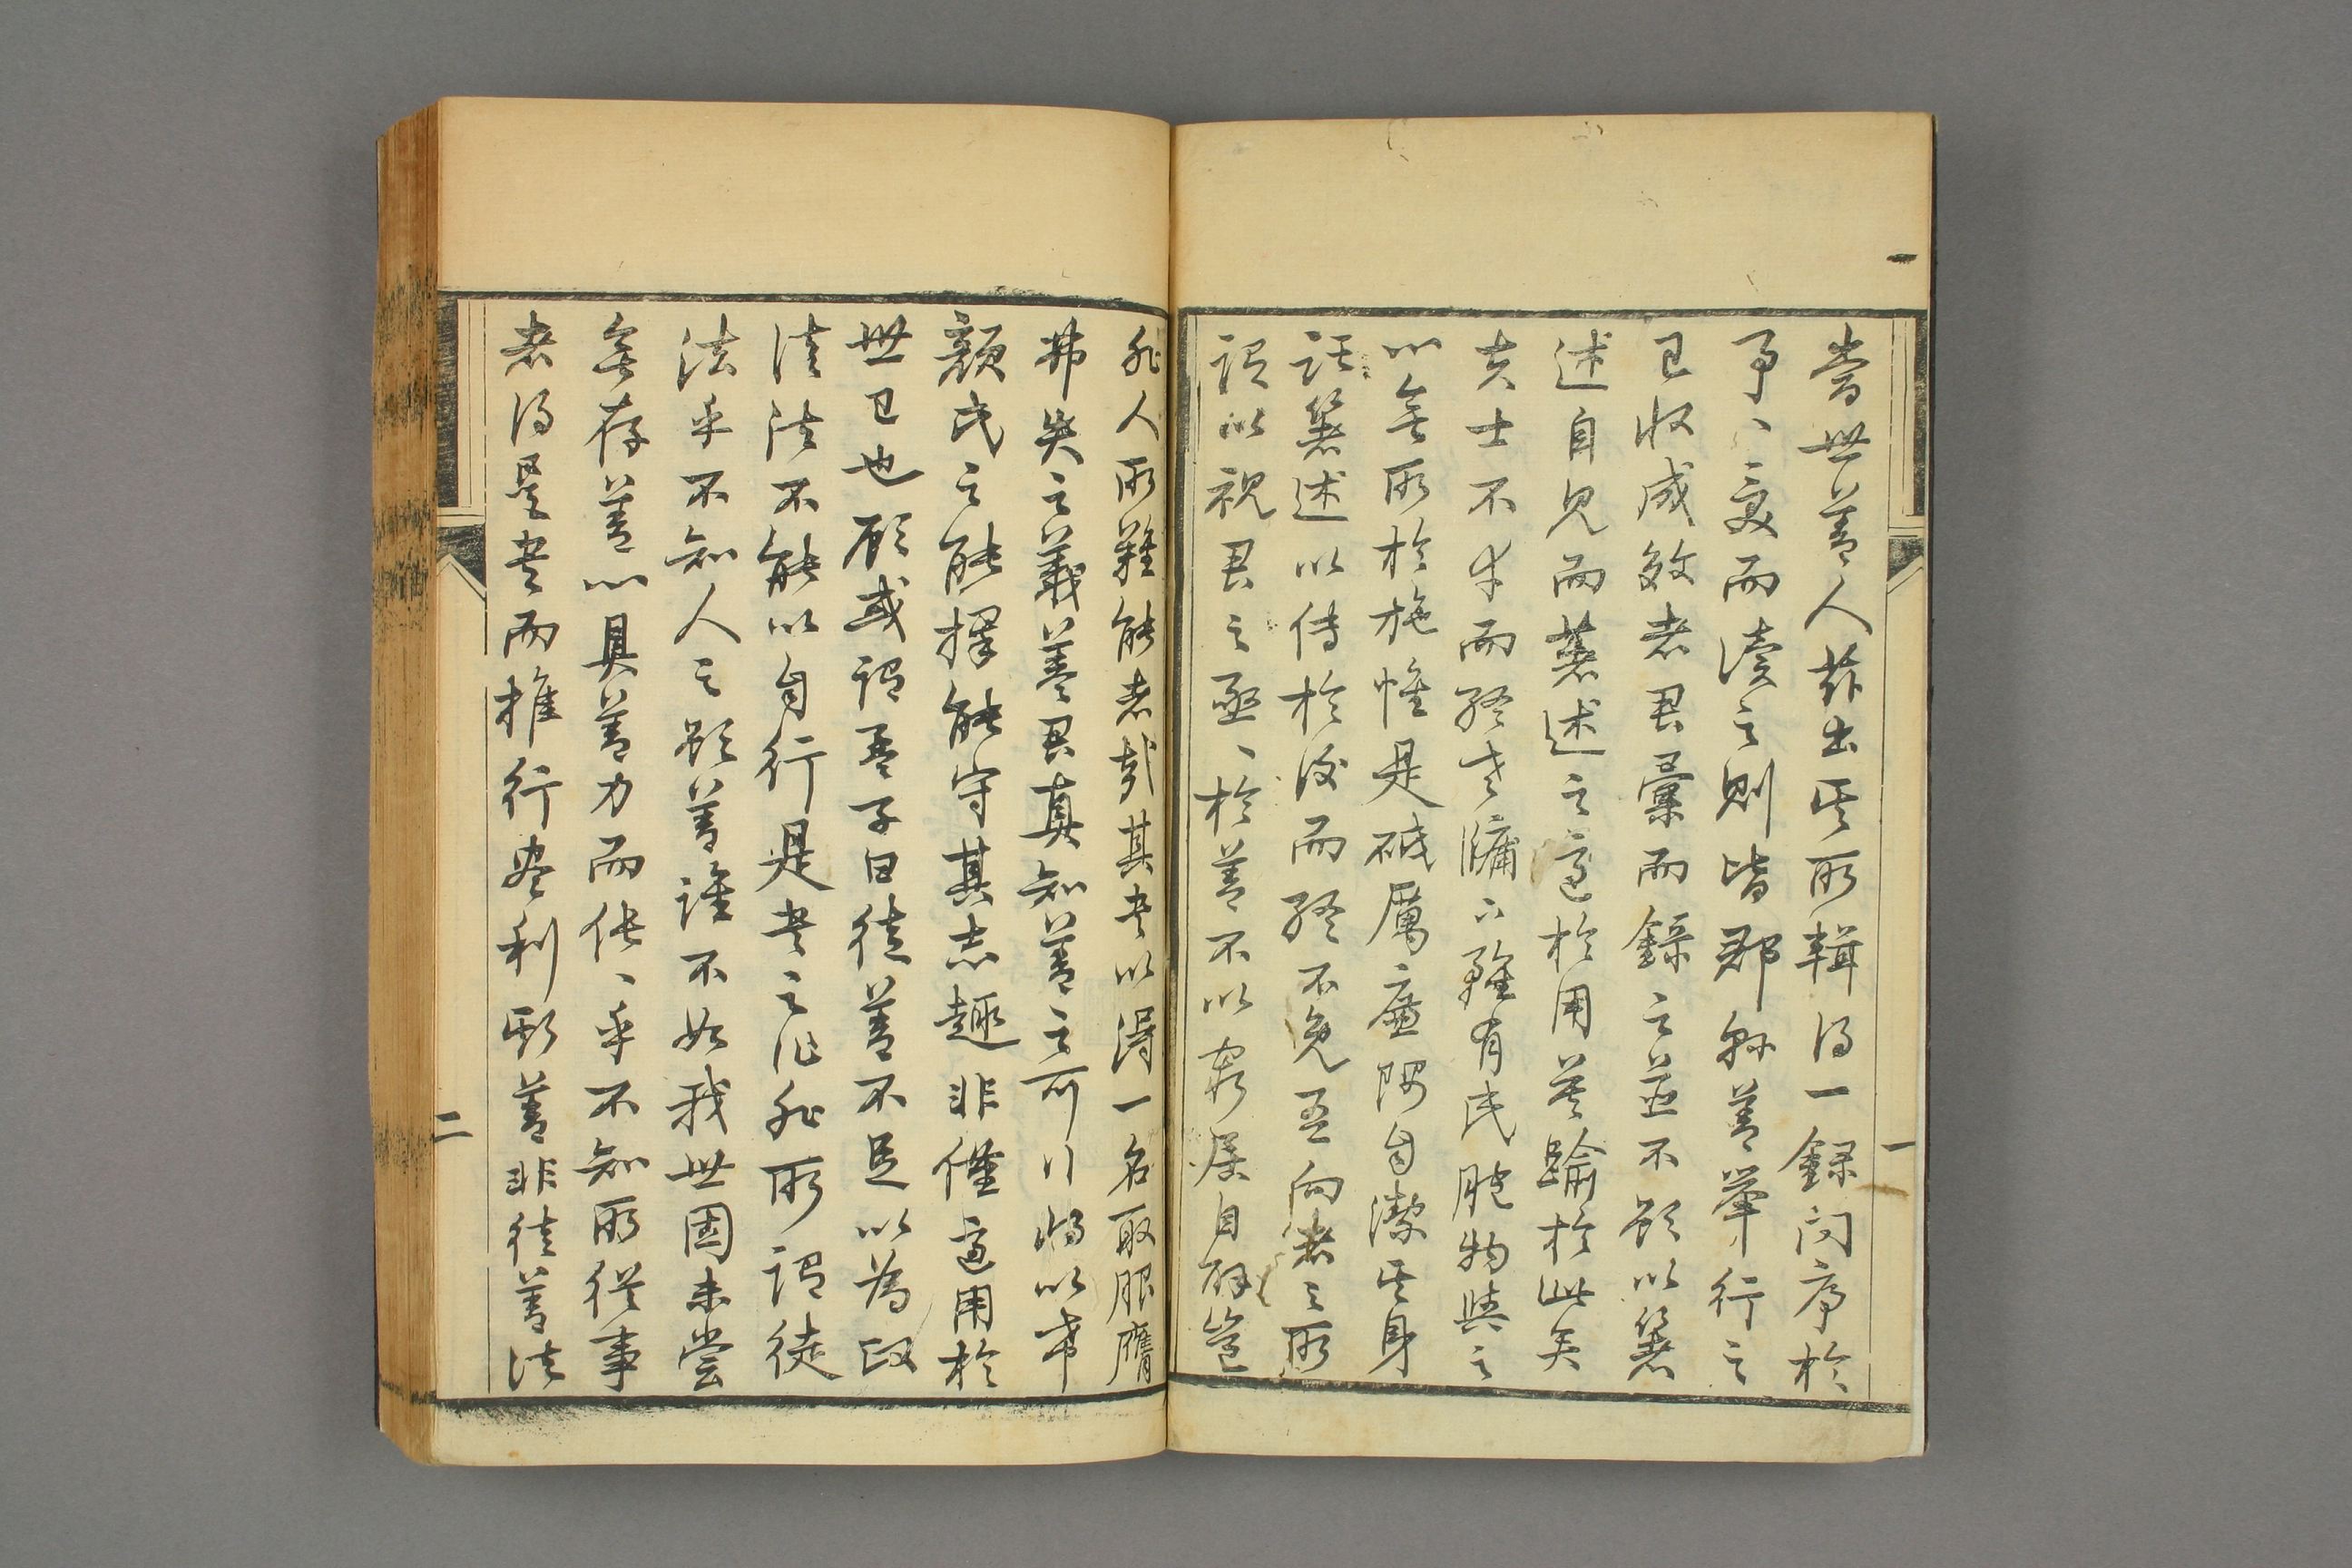 當世善人茲出其所輯得一錄問序於
予予受而讀之則皆郡縣善舉行之
已收成效者君彙而錄之並不欲以著
述自見而著述之適於用莫踰於此矣
夫士不幸而終老牖下雖有民胞物與之
心無所於施惟是砥厲廉隅自潔其身
託著述以傳於後而終不免吾向者之所
謂以視君之亟亟於善不以窮居自放豈
非人所難能者哉其書以得一名取服膺
弗失之義善君真知善之可行將以希
顏氏之能擇能守其志趣非僅適用於
世已也顧或謂孟子曰徒善不足以為政
徒法不能以自行是書之作非所謂徒
法乎不知人之欲善誰不如我世固未嘗
無存善心具善力而倀倀乎不知所從事
者得是書而推行盡利斯善非徒善法
一
一
二